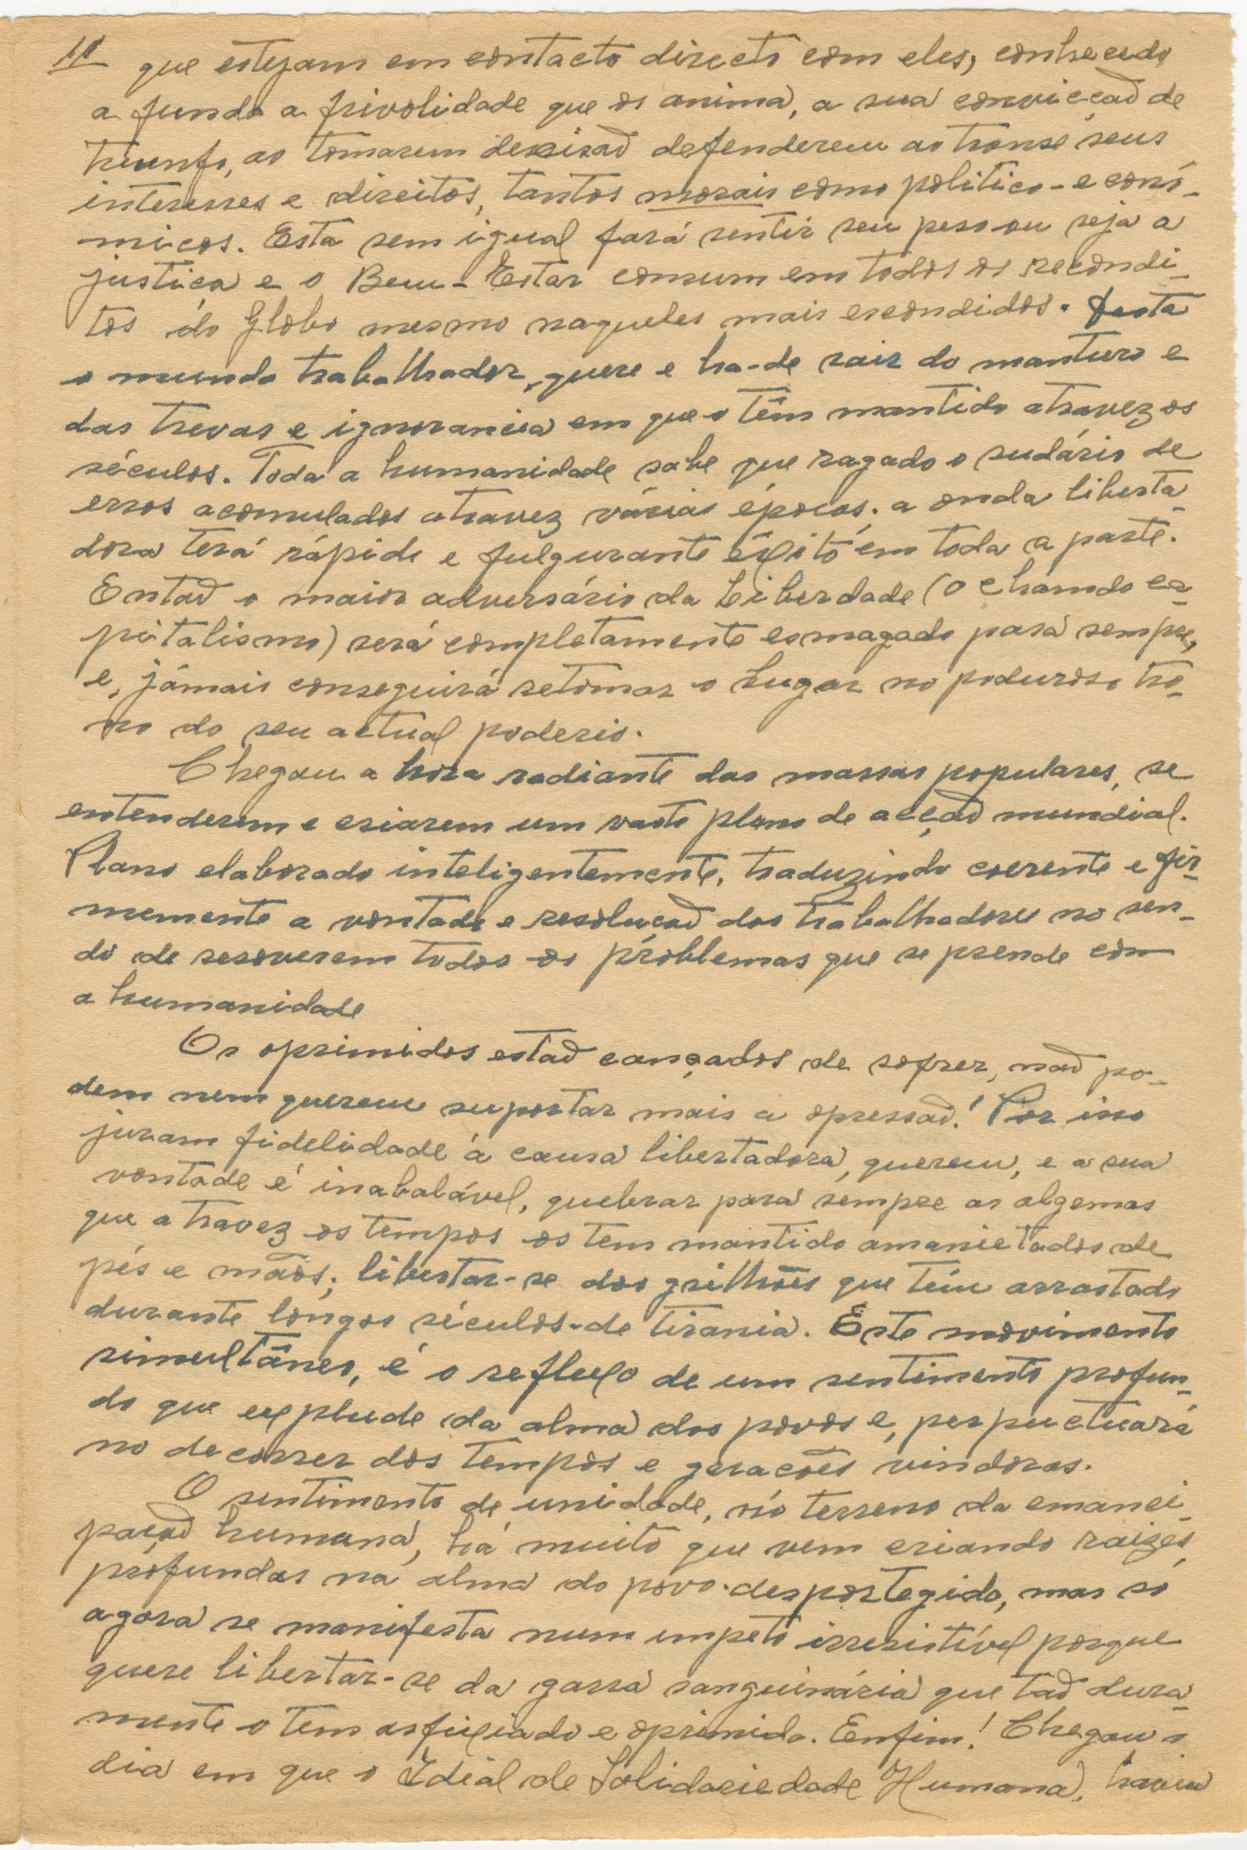 10 que estejam em contacto directo com eles, conhecendo
a fundo a frivolidade que os anima, a sua convicçaõ de
triunfo, ao tomarem decisaõ defenderem ao transe seus
interesses e direitos, tantos morais como politico-econó-
micos. Esta sem igual fará sentir seu peso ou seja a
justiça e o Bem-Estar comum em todos os recondi-
tos do Globo mesmo naqueles mais escondidos.
o mundo trabalhador, quere e ha-de sair do manturo e
das trevas e ignorancia em que o têm mantido atravez os
séculos. Toda a humanidade sabe que ragado o sudário de
erros acomulados atravez várias épocas. a onda liberta-
dora terá rápido e fulgurante êxito em toda a parte.
Entaõ o maior adversário da Liberdade (o chamdo ca-
pitalismo) será completamente esmagado para sempre,
e, jámais conseguirá retomar o lugar no poduroso tro-
no do seu actual poderio.
Chegou a hora radiante das massas populares, se
entenderem e criarem um vasto plano de acçaõ mundial.
Plano elaborado inteligentemente, traduzindo coerente e fir-
memente a vontade e resoluçaõ dos trabalhadores no sen-
do de resoverem todos os problemas que se prende com
a humanidade
Os oprimidos estaõ cançados de sofrer, naõ po-
dem nem querem suportar mais a opressaõ! Por isso
juram fidelidade á causa libertadora, querem, e a sua
vontade é inabalável, quebrar para sempre as algemas
que atravez os tempos os tem mantido amanietados de
pés e mãos; libertar-se dos grilhões que têm arrastado
durante longos séculos de tirania. Este movimento
simultâneo, é o reflexo de um sentimento profun-
do que explude da alma dos povos e, perpuetuará
no decorrer dos tempos e geracões vindoras.
O sentimento de unidade, no terreno da emanci-
paçaõ humana, há muito que vem criando raizes,
profundas na alma do povo desportegido, mas só
agora se manifesta num impeto irresistível porque
quere libertar-se da garra sanguinária que taõ dura-
mente o tem asfixiado e oprimido. Enfim! Chegou o
dia em que o Ideal de Solidariedade Humana,